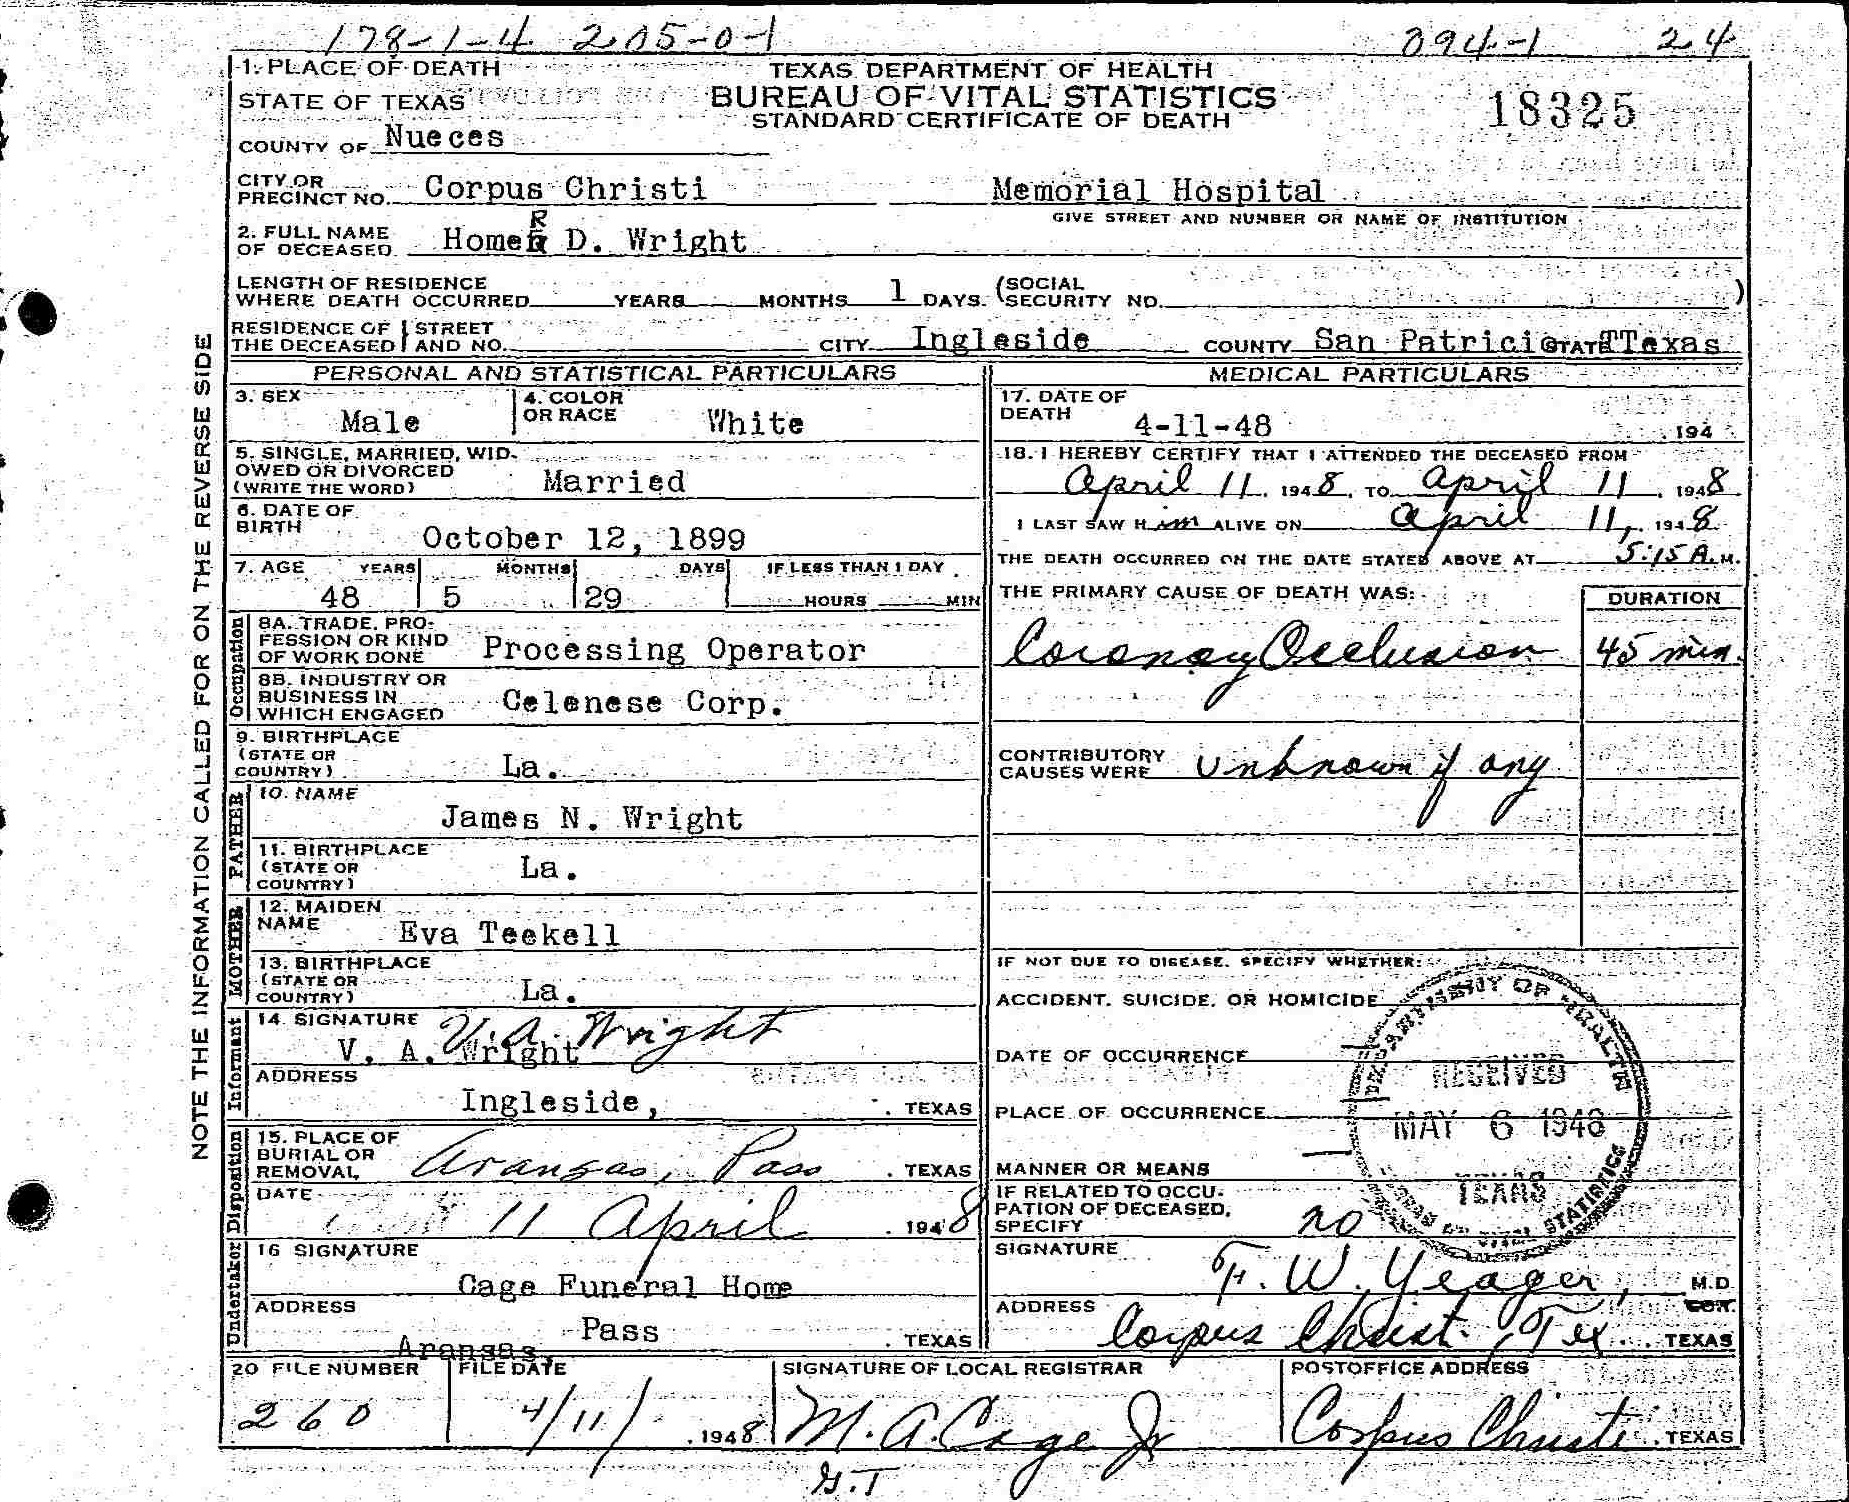 178-1-4 205-0-1 094-1 24
1. PLACE OF DEATH
TEXAS DEPARTMENT OF HEALTH
STATE OF TEXAS
BUREAU OF VITAL STATISTICS
STANDARD CERTIFICATE OF DEATH
18325
COUNTY OF Nueces
CITY OR PRECINCT NO. Corpus Christi Memorial Hospital
GIVE STREET AND NUMBER OR NAME OF INSTITUTION
2. FULL NAME OF DECEASED HomeR D. Wright
LENGTH OF RESIDENCE WHERE DEATH OCCURRED YEARS MONTHS 1 DAYS. (SOCIAL SECURITY NO. )
RESIDENCE OF THE DECEASED STREET AND NO. CITY Ingleside COUNTY San Patricio STATE TTexas
PERSONAL AND STATISTICAL PARTICULARS
3. SEX Male 4. COLOR OR RACE White
5. SINGLE, MARRIED, WIDOWED OR DIVORCED (WRITE THE WORD) Married
6. DATE OF BIRTH October 12, 1899
7. AGE YEARS MONTHS DAYS IF LESS THAN 1 DAY
48 5 29 HOURS MIN
Occupation
8A. TRADE, PROFESSION OR KIND OF WORK DONE Processing Operator
8B. INDUSTRY OR BUSINESS IN WHICH ENGAGED Celenese Corp.
9. BIRTHPLACE (STATE OR COUNTRY) La.
FATHER
10. NAME James N. Wright
11. BIRTHPLACE (STATE OR COUNTRY) La.
MOTHER
12. MAIDEN NAME Eva Teekell
13. BIRTHPLACE (STATE OR COUNTRY) La.
Informant
14. SIGNATURE V. A. Wright
V. A. Wright
ADDRESS Ingleside, . TEXAS
Disposition
15. PLACE OF BURIAL OR REMOVAL Aransas, Pass . TEXAS
DATE 11 April . 1948
Undertaker
16 SIGNATURE Cage Funeral Home
ADDRESS Aransas, Pass . TEXAS
MEDICAL PARTICULARS
17. DATE OF DEATH 4-11-48 . 194
18. I HEREBY CERTIFY THAT I ATTENDED THE DECEASED FROM
April 11 . 1948. TO April 11 . 1948
I LAST SAW Him ALIVE ON April 11, . 1948
THE DEATH OCCURRED ON THE DATE STATED ABOVE AT 5:15 A.M.
THE PRIMARY CAUSE OF DEATH WAS: DURATION
Coronary Occlusion 45 min.
CONTRIBUTORY CAUSES WERE unknown if any
IF NOT DUE TO DISEASE, SPECIFY WHETHER:
ACCIDENT, SUICIDE, OR HOMICIDE
DATE OF OCCURRENCE
PLACE OF OCCURRENCE
MANNER OR MEANS
DEPARTMENT OF HEALTH
RECEIVED
MAY 6 1948
TEXAS
BUREAU OF VITAL STATISTICS
IF RELATED TO OCCUPATION OF DECEASED, SPECIFY no
SIGNATURE F. W. Yeager, M.D.
ADDRESS Corpus Christi, Tex. . TEXAS
20 FILE NUMBER FILE DATE SIGNATURE OF LOCAL REGISTRAR POSTOFFICE ADDRESS
260 4/11/ . 1948 M. A. Cage Jr Corpus Christi . TEXAS
G.T
NOTE THE INFORMATION CALLED FOR ON THE REVERSE SIDE